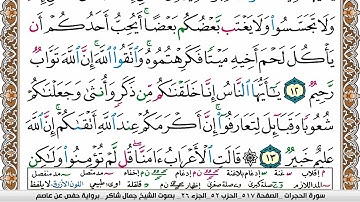 وَلَا تَجَسَّسُوا۟ وَلَا يَغْتَب بَّعْضُكُم بَعْضًا ۚ أَيُحِبُّ أَحَدُكُمْ أَن
يَأْكُلَ لَحْمَ أَخِيهِ مَيْتًا فَكَرِهْتُمُوهُ ۚ وَٱتَّقُوا۟ ٱللَّهَ ۚ إِنَّ ٱللَّهَ تَوَّابٌ
رَّحِيمٌ ١٢ يَـٰٓأَيُّهَا ٱلنَّاسُ إِنَّا خَلَقْنَـٰكُم مِّن ذَكَرٍ وَأُنثَىٰ وَجَعَلْنَـٰكُمْ
شُعُوبًا وَقَبَآئِلَ لِتَعَارَفُوٓا۟ ۚ إِنَّ أَكْرَمَكُمْ عِندَ ٱللَّهِ أَتْقَىٰكُمْ ۚ إِنَّ ٱللَّهَ
عَلِيمٌ خَبِيرٌ ١٣ قَالَتِ ٱلْأَعْرَابُ ءَامَنَّا ۖ قُل لَّمْ تُؤْمِنُوا۟ وَلَـٰكِن
سورة الحجرات . الصفحة ٥١٧ . الحزب ٥٢ . الجزء ٢٦ . بصوت الشيخ جمال شاكر . برواية حفص عن عاصم